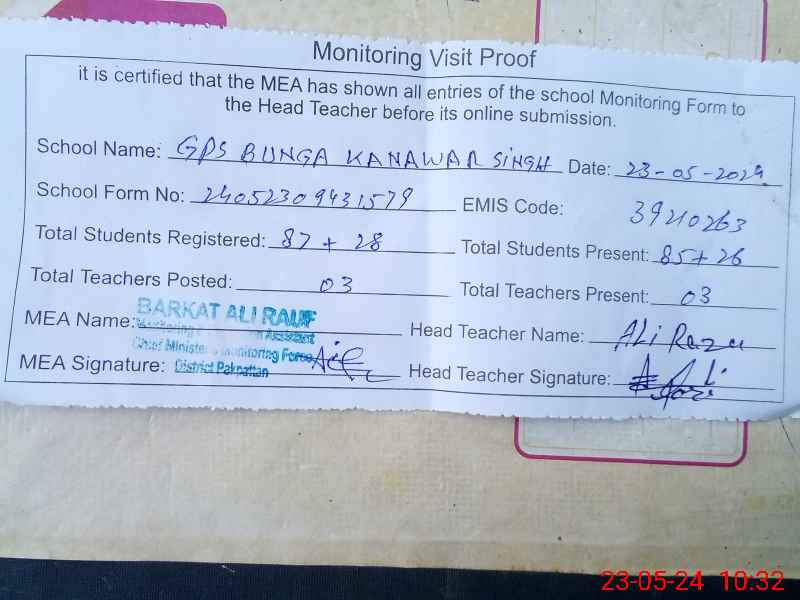 Monitoring Visit Proof
it is certified that the MEA has shown all entries of the school Monitoring Form to
the Head Teacher before its online submission.
School Name: GPS BUNGA KANAWAR SINGH Date: 23-05-2024
School Form No: 24052309431579 EMIS Code: 39210263
Total Students Registered: 87 + 28 Total Students Present: 85 + 26
Total Teachers Posted: 03 Total Teachers Present: 03
BARKAT ALI RAUF
MEA Name: Monitoring Assistant Head Teacher Name: Ali Raza
Chief Minister's Monitoring Force
MEA Signature: District Pakpattan Head Teacher Signature: Ali
23-05-24 10:32